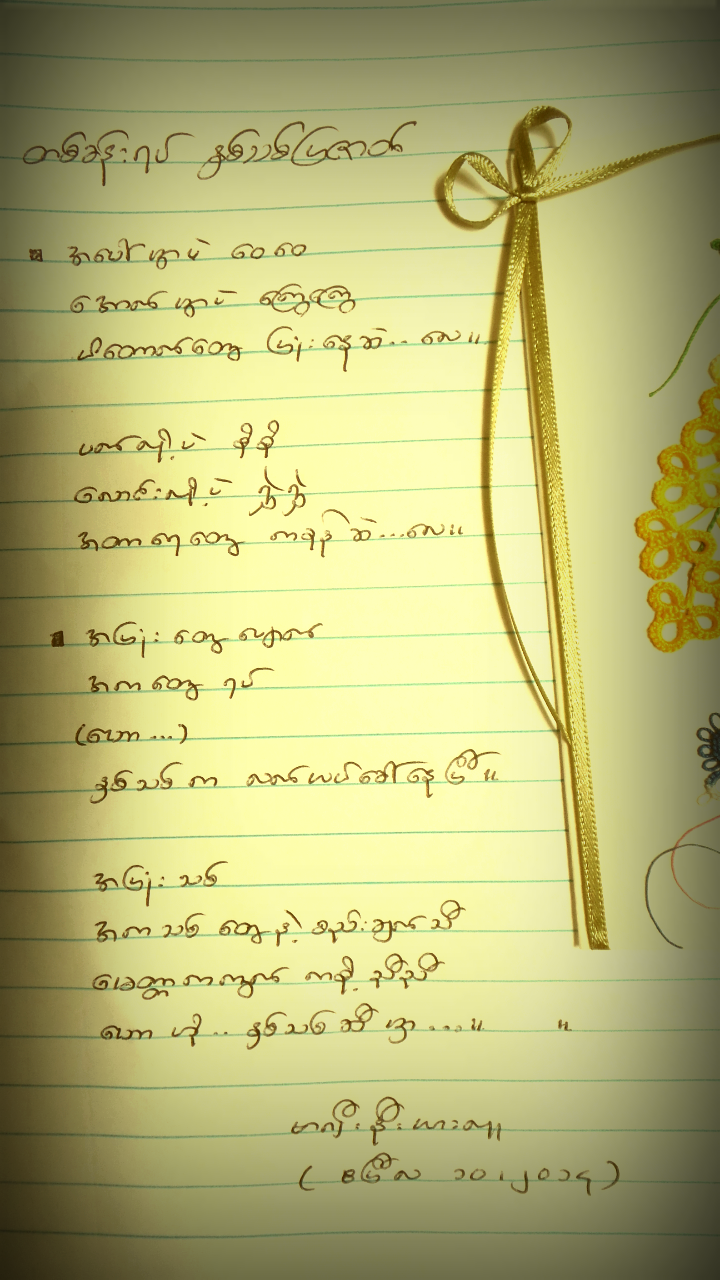 တစ်ခန်းရပ် နှစ်သစ်ပြဇာတ်
အပေါ်မှာပဲ ဝေဝေ
အောက်မှာပဲ ကြွေကြွေ
ပိတောက်တွေ ပြုံးနေဆဲ... လေ။
ပက်လို့ပဲ စိုစို
လောင်းလို့ပဲ ညှဲ့ညှဲ့
အတာရေတွေ ကခုန်ဆဲ...လေ။
အပြုံးတွေလျှောက်
အကတွေရပ်
(ဟော...)
နှစ်သစ်က လက်ယပ်ခေါ်နေပြီ။
အပြုံးသစ်
အကသစ်တွေနဲ့ စည်းချက်သီ
မေတ္တာကကွက် ကစို့ညီညီ
ဟောဟို.. နှစ်သစ်ဆီမှာ....။ ။
(ဧပြီလ ၁၀၊၂၀၁၄)